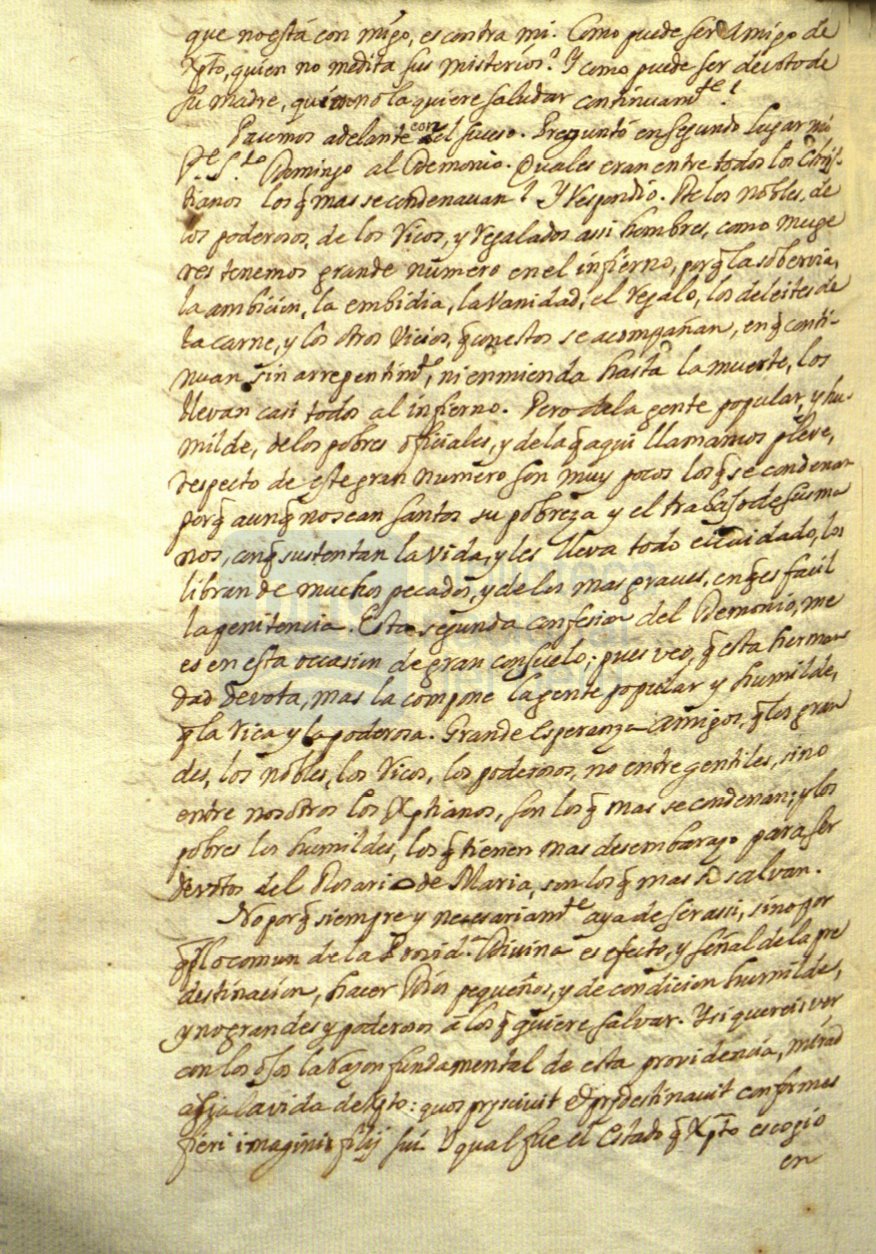 que no está con migo, es contra mi. Como puede ser Amigo de
Xpto, quien no medita sus misterios? Y como puede ser devoto de
su madre, quien no la quiere saludar continuamte?
Pacemos adelante con el suceso. Preguntó en segundo lugar mi
Pe. Sto. Domingo al Demonio. Quales eran entre todos los Chris-
tianos los q̄ mas se condenauan? Y respondio. De los nobles, de
los poderosos, de los ricos, y regalados assi hombres, como muge
res tenemos grande numero en el infierno, porq̄ la sobervia,
la ambicion, la embidia, la vanidad, el regalo, los deleites de
la carne, y los otros vicios, q̄ con estos se acompañan, en q̄ conti-
nuan sin arrepentimto, ni enmienda hasta la muerte, los
llevan casi todos al infierno. Pero de la gente popular, y hu-
milde, de los pobres oficiales, y de la q̄ aqui llamamos pleve,
respecto de este gran numero son muy pocos los q̄ se condenan
porq̄ aunq̄ no sean santos su pobreza y el trabajo de sus ma
nos, con q̄ sustentan la vida, y les lleva todo el cuidado, los
libran de muchos pecados, y de los mas graues, en q̄ es facil
la penitencia. Esta segunda confesion del Demonio, me
es en esta occasion de gran consuelo; pues veo, q̄ esta herman
dad devota, mas la compone la gente popular y humilde,
q̄ la rica y la poderosa. Grande Esperanza amigos, q̄ los gran
des, los nobles, los ricos, los poderosos, no entre gentiles, sino
entre nosotros los Xptianos, son los q̄ mas se condenan; y los
pobres los humildes, los q̄ tienen mas desembarazo para ser
devotos del Rosario de Maria, son los q̄ mas se salvan.
No porq̄ siempre y necesariamte aya de ser assi, sino por
q̄ lo comun de la Provida. Divina es efecto, y señal de la pre
destinacion, hacer Dios pequeños, y de condicion humildes,
y no grandes y poderosos a los q̄ quiere salvar. Y si quereis ver
con los ojos la razon fundamental de esta providencia, mirad
la vida de Xpto: quos prescivit et predestinavit conformes
fieri imaginis filij sui. qual fue el Estado q̄ Xpto escogio
en